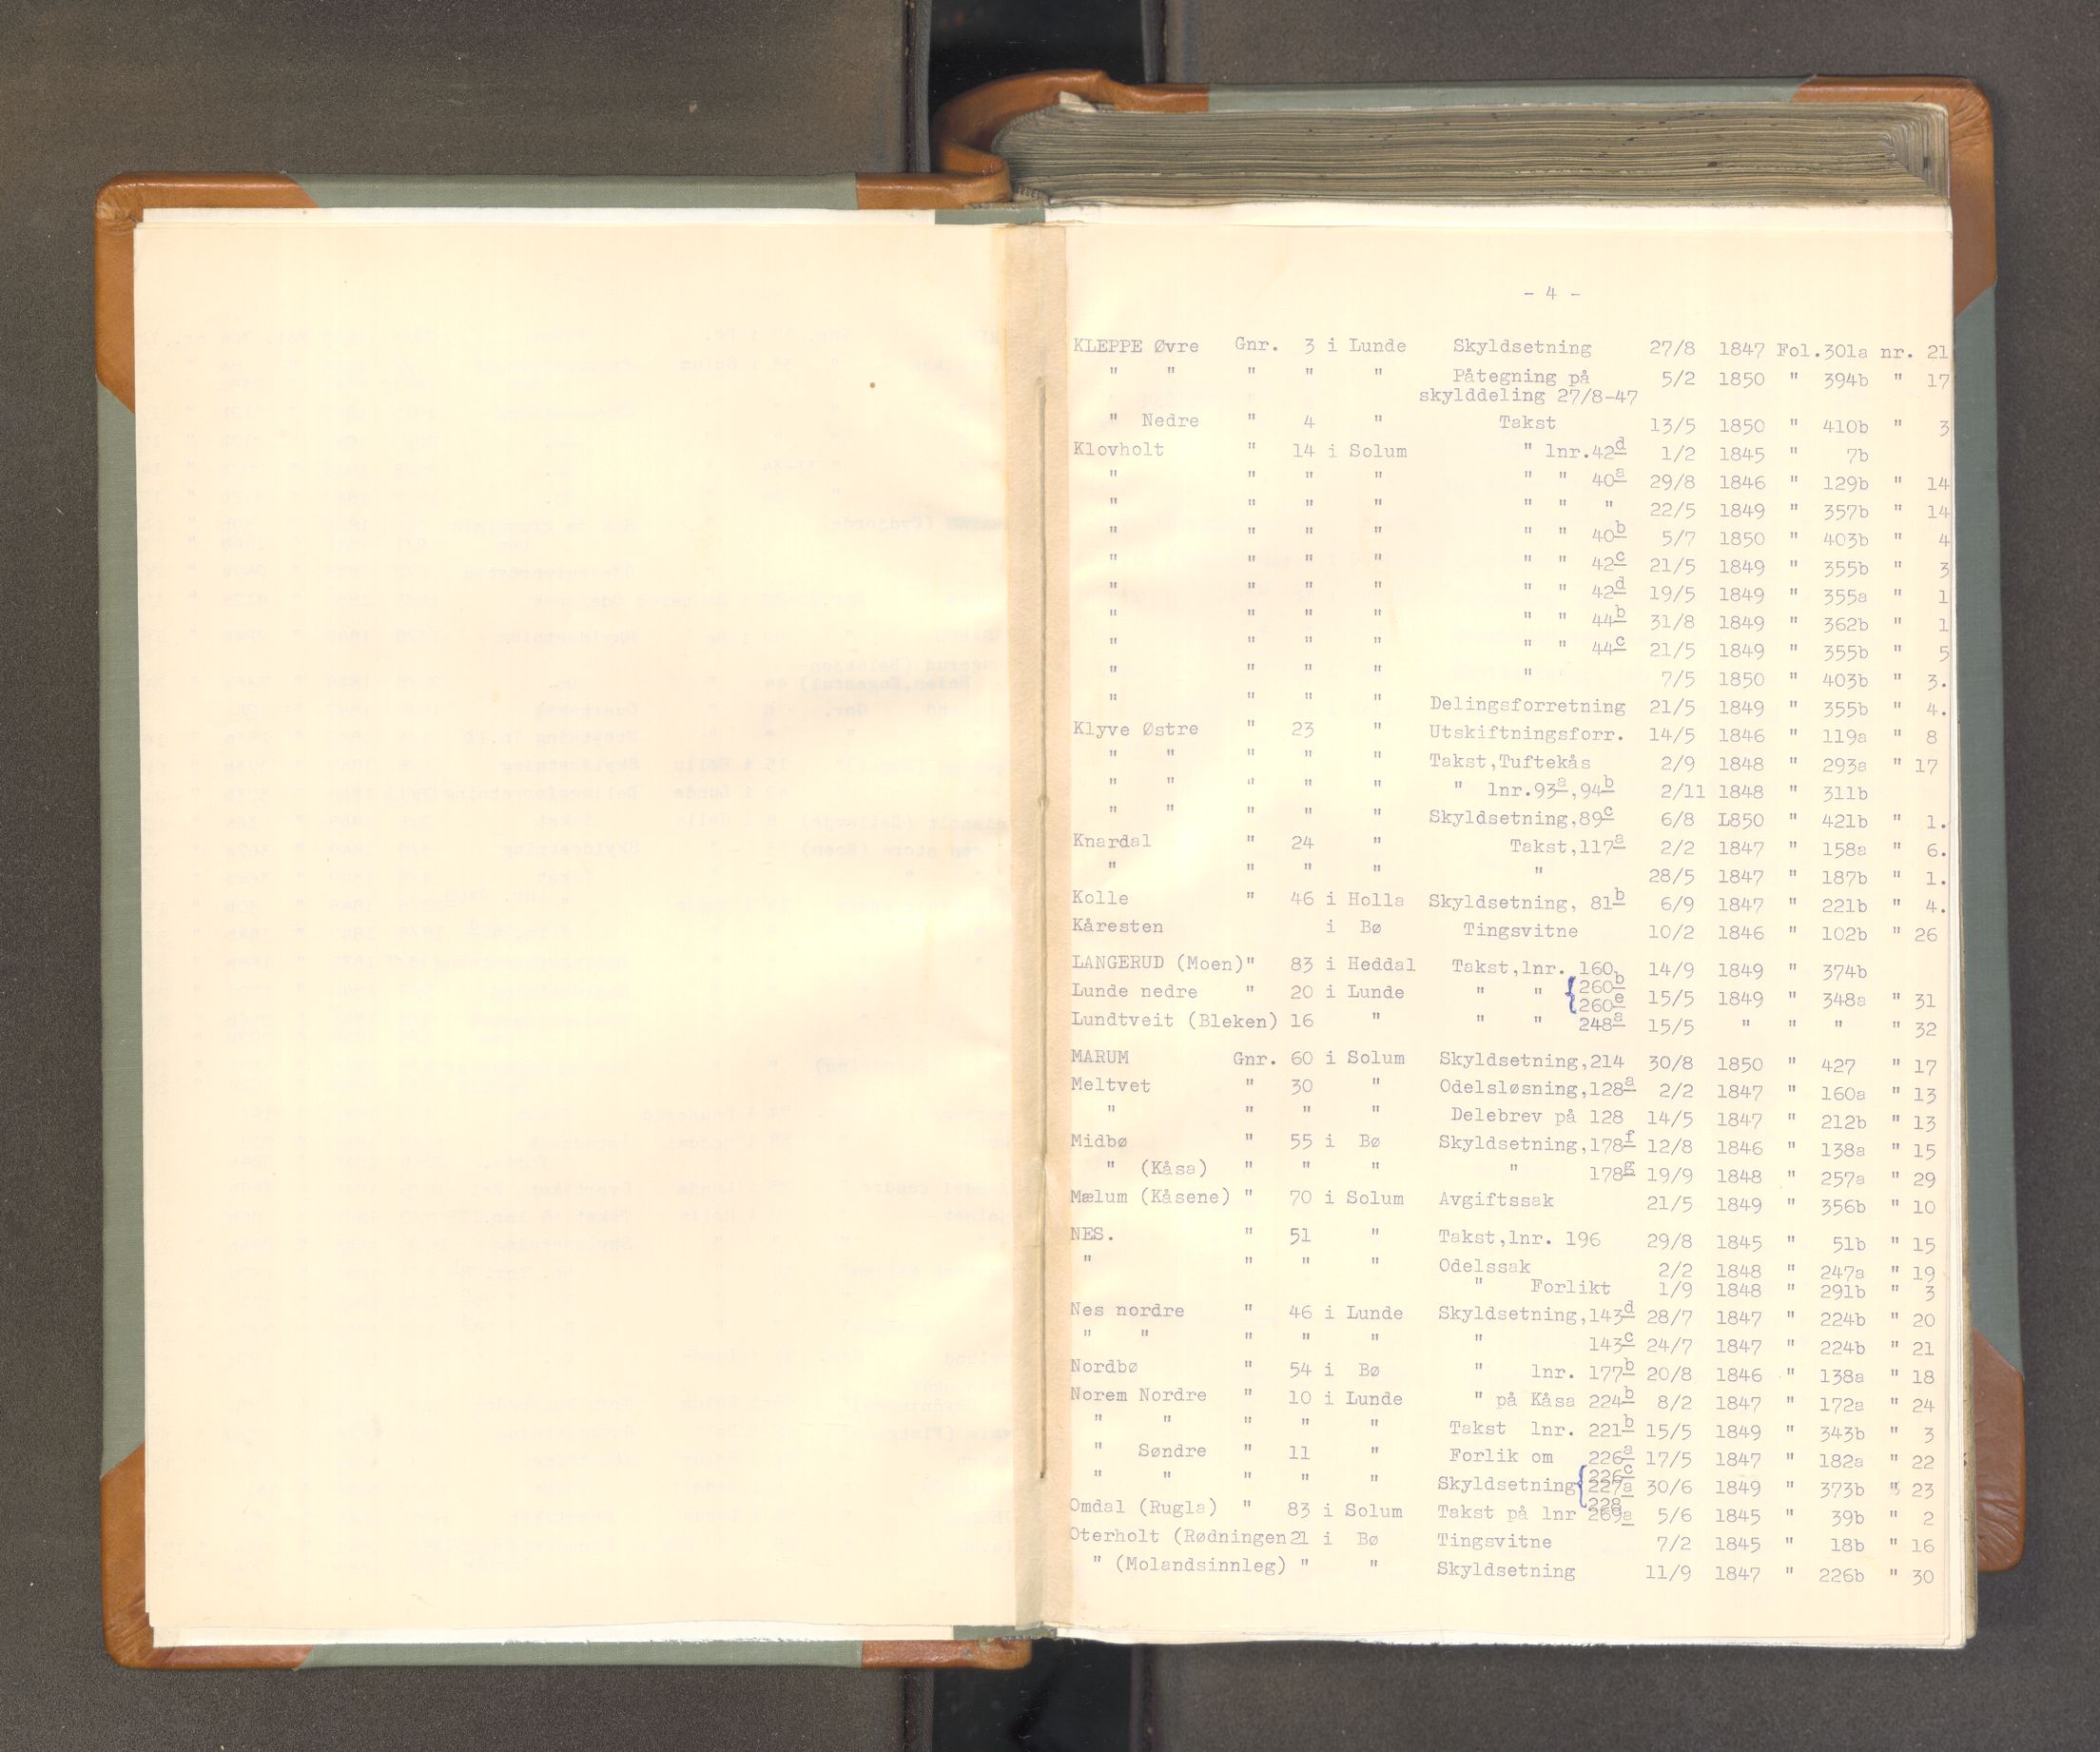 - 4 -
KLEPPE Øvre Gnr. 3 i Lunde Skyldsetning 27/8 1847 Fol.301a nr. 21
" " " " " Påtegning på 5/2 1850 " 394b " 17
skylddeling 27/8-47
" Nedre " 4 " Takst 13/5 1850 " 410b " 3
Klovholt " 14 i Solum " lnr.42d 1/2 1845 " 7b
" " " " " " 40a 29/8 1846 " 129b " 14
" " " " " " " 22/5 1849 " 357b " 14
" " " " " " 40b 5/7 1850 " 403b " 4
" " " " " " 42c 21/5 1849 " 355b " 3
" " " " " " 42d 19/5 1849 " 355a " 1
" " " " " " 44b 31/8 1849 " 362b " 1
" " " " " " 44c 21/5 1849 " 355b " 5
" " " " " 7/5 1850 " 403b " 3.
" " " " Delingsforretning 21/5 1849 " 355b " 4.
Klyve Østre " 23 " Utskiftningsforr. 14/5 1846 " 119a " 8
" " " " " Takst,Tuftekås 2/9 1848 " 293a " 17
" " " " " " lnr.93a,94b 2/11 1848 " 311b
" " " " " Skyldsetning,89c 6/8 L850 " 421b " 1.
Knardal " 24 " Takst,117a 2/2 1847 " 158a " 6.
" " " " " 28/5 1847 " 187b " 1.
Kolle " 46 i Holla Skyldsetning, 81b 6/9 1847 " 221b " 4.
Kåresten i Bø Tingsvitne 10/2 1846 " 102b " 26
LANGERUD (Moen)" 83 i Heddal Takst,lnr. 160 14/9 1849 " 374b
Lunde nedre " 20 i Lunde " " {260b
260e 15/5 1849 " 348a " 31
Lundtveit (Bleken) 16 " " " 248a 15/5 " " " " 32
MARUM Gnr. 60 i Solum Skyldsetning,214 30/8 1850 " 427 " 17
Meltvet " 30 " Odelsløsning,128a 2/2 1847 " 160a " 13
" " " " Delebrev på 128 14/5 1847 " 212b " 13
Midbø " 55 i Bø Skyldsetning,178f 12/8 1846 " 138a " 15
" (Kåsa) " " " " 178g 19/9 1848 " 257a " 29
Mælum (Kåsene) " 70 i Solum Avgiftssak 21/5 1849 " 356b " 10
NES. " 51 " Takst,lnr. 196 29/8 1845 " 51b " 15
" " " " Odelssak 2/2 1848 " 247a " 19
" Forlikt 1/9 1848 " 291b " 3
Nes nordre " 46 i Lunde Skyldsetning,143d 28/7 1847 " 224b " 20
" " " " " " 143c 24/7 1847 " 224b " 21
Nordbø " 54 i Bø " lnr. 177b 20/8 1846 " 138a " 18
Norem Nordre " 10 i Lunde " på Kåsa 224b 8/2 1847 " 172a " 24
" " " " " Takst lnr. 221b 15/5 1849 " 343b " 3
" Søndre " 11 " Forlik om 226a 17/5 1847 " 182a " 22
" " " " " Skyldsetning {226c
227a 30/6 1849 " 373b " 23
228
Omdal (Rugla) " 83 i Solum Takst på lnr 269a 5/6 1845 " 39b " 2
Oterholt (Rødningen 21 i Bø Tingsvitne 7/2 1845 " 18b " 16
" (Molandsinnleg) " " Skyldsetning 11/9 1847 " 226b " 30